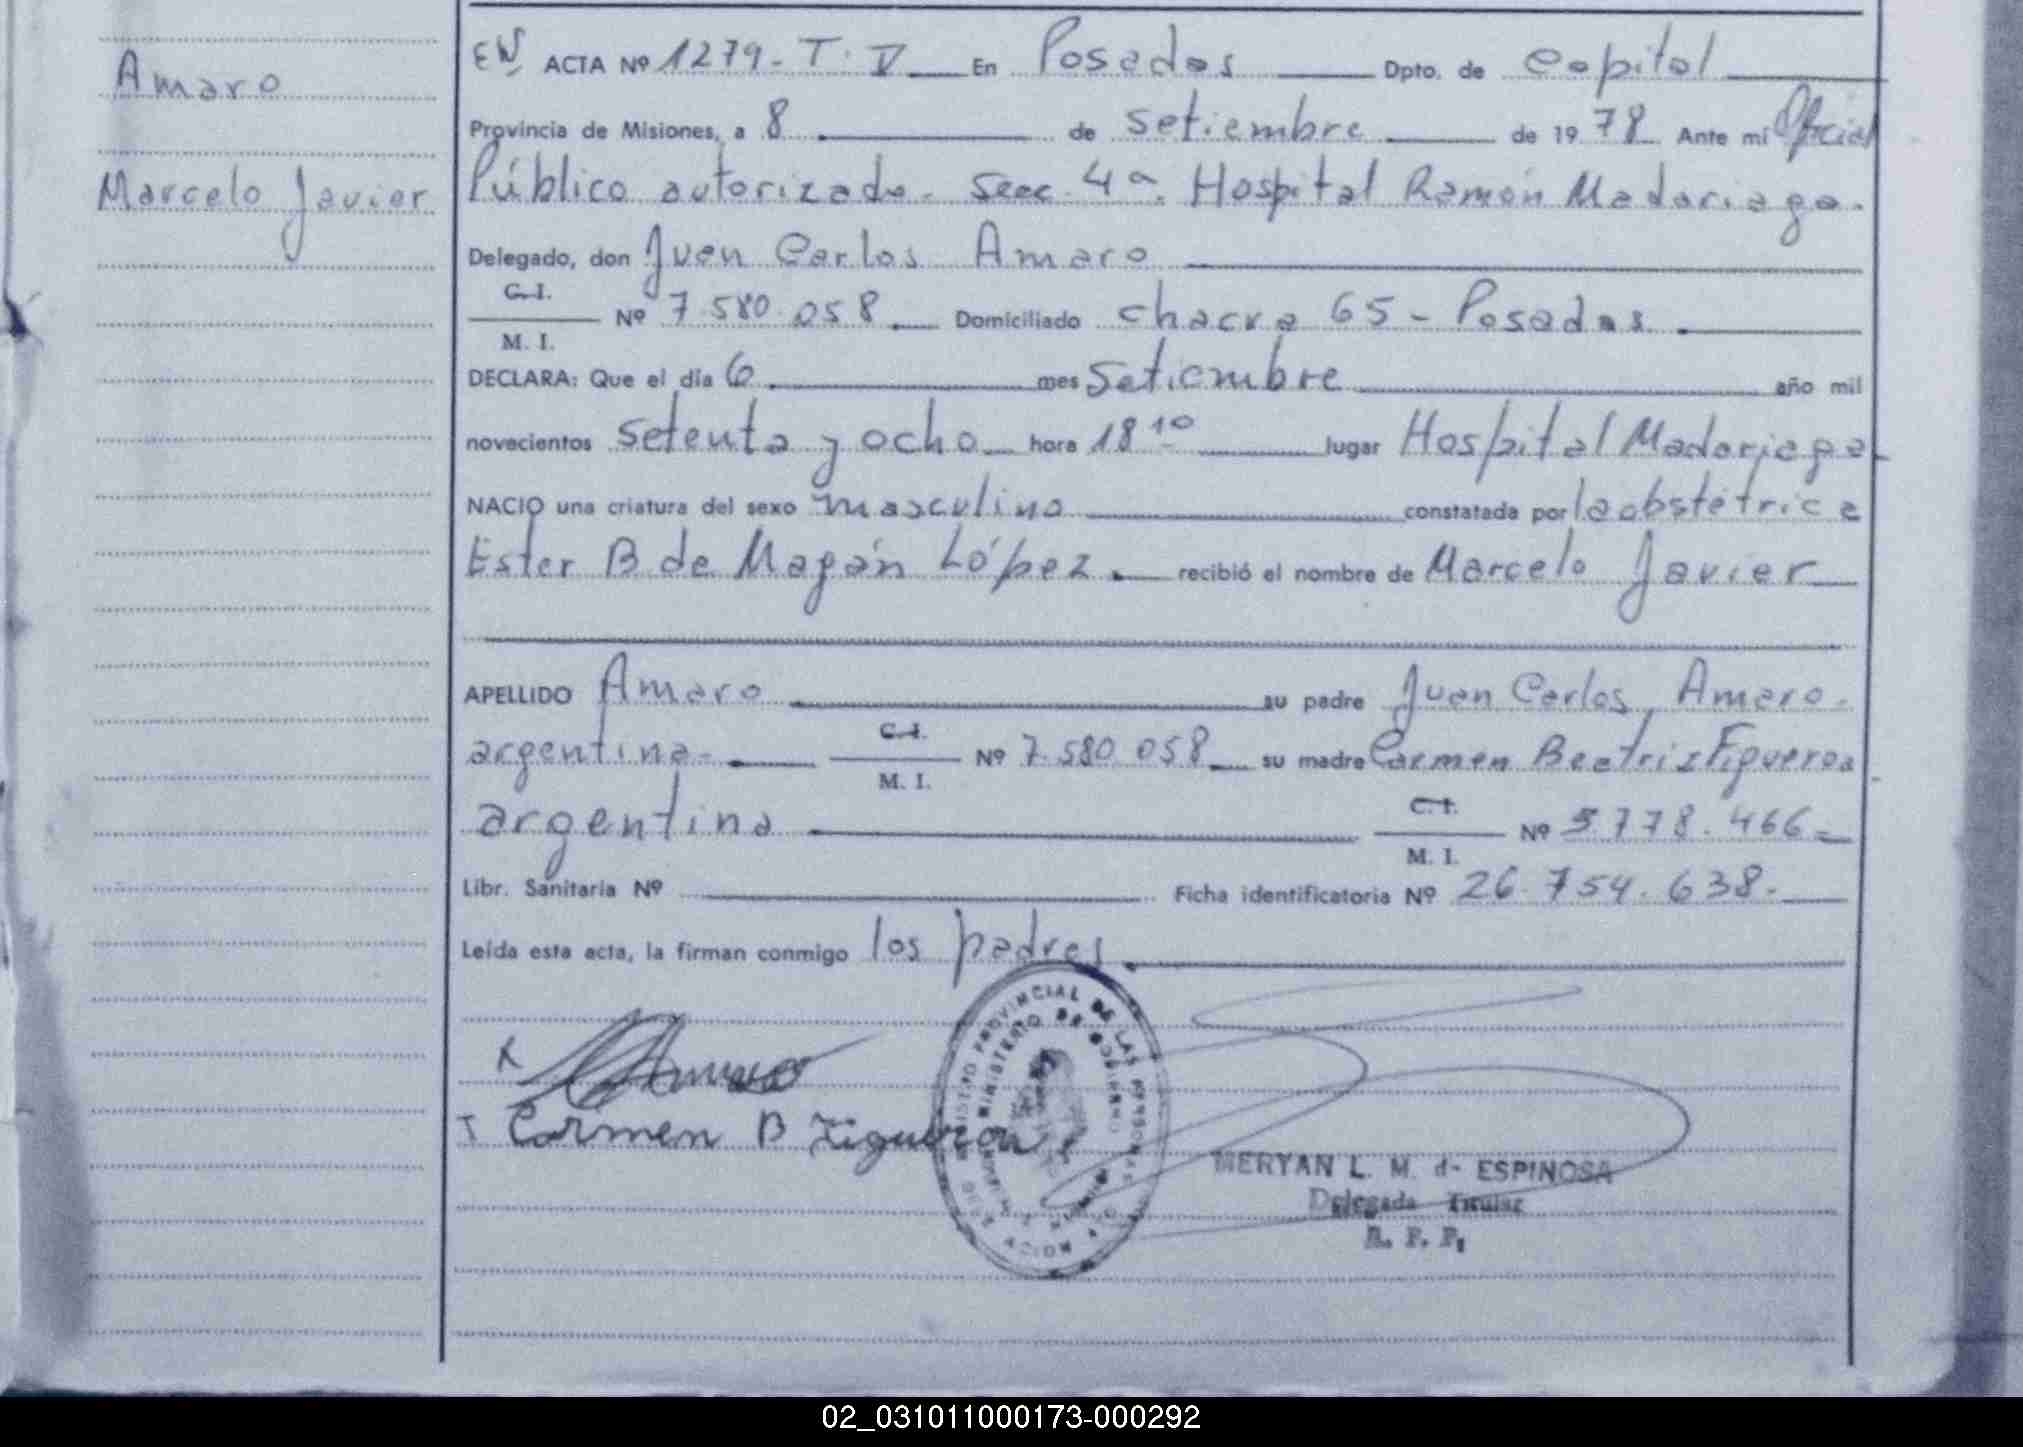 Amaro
Marcelo Javier
EN ACTA Nº 1279 - T. V En Posadas Dpto. de Capital
Provincia de Misiones, a 8 de setiembre de 1978 Ante mi Oficial
Público autorizado. Secc. 4ª. Hospital Ramón Madariaga.
Delegado, don Juan Carlos Amaro
C. I.
M. I.
Nº 7.580.058 Domiciliado chacra 65 - Posadas
DECLARA: Que el día 6 mes Setiembre año mil
novecientos setenta y ocho hora 18 10 lugar Hospital Madariaga
NACIO una criatura del sexo masculino constatada por la obstétrica
Ester B de Magán López. recibió el nombre de Marcelo Javier
APELLIDO Amaro su padre Juan Carlos Amaro.
argentina- C. I.
M. I.
Nº 7.580.058 su madre Carmen Beatriz Figueroa
argentina C. I.
M. I.
Nº 5.778.466
Libr. Sanitaria Nº Ficha identificatoria Nº 26.754.638.
Leída esta acta, la firman conmigo los padres.
Amaro
Carmen B Figueroa
PROVINCIAL DE LAS PERSONAS
MINISTERIO DE GOBIERNO
MERYAN L. M. de ESPINOSA
Delegada Titular
R. P. P.
02_031011000173-000292